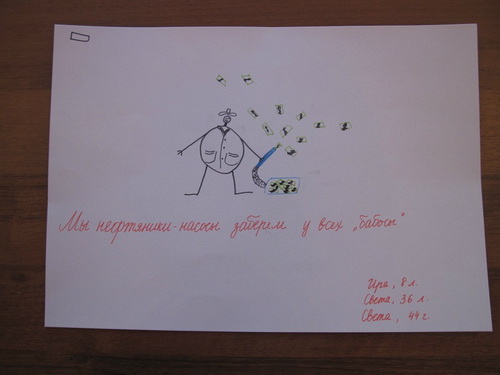 Мы нефтяники-насосы заберём у всех „бабосы"
Ира, 8 л.
Света, 36 л.
Света, 44 г.